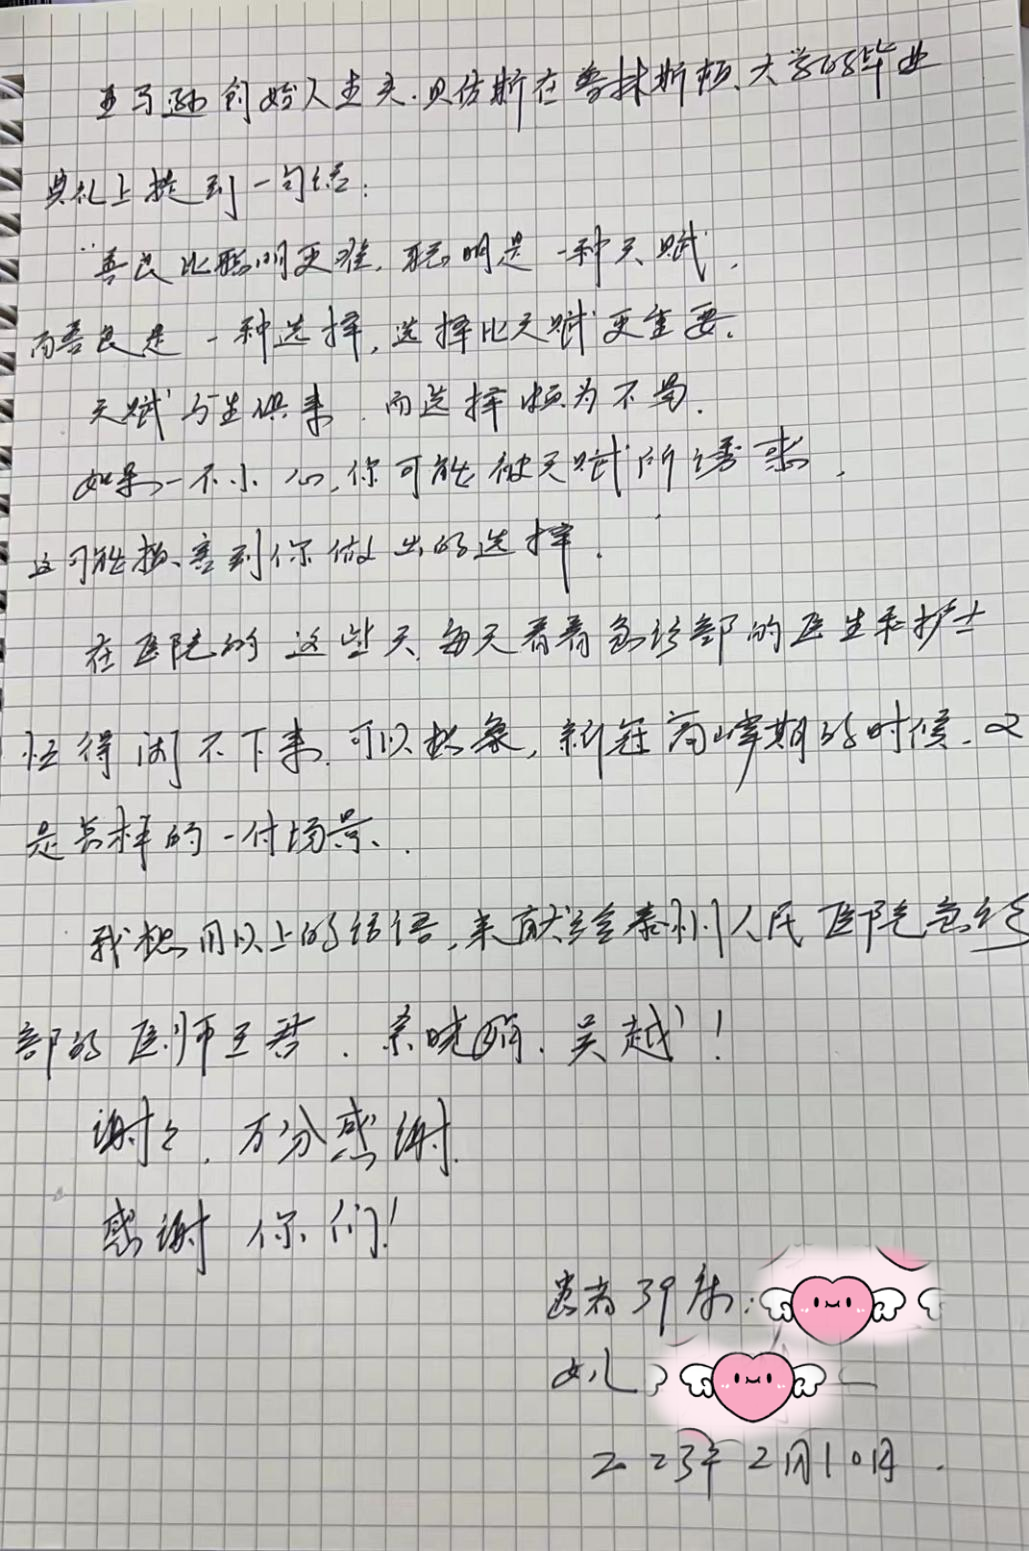 亚马逊创始人杰夫.贝佐斯在普林斯顿大学的毕业
典礼上提到一句话:
"善良比聪明更难,聪明是一种天赋,
而善良是一种选择,选择比天赋更重要.
天赋与生俱来.而选择颇为不易.
如果一不小心,你可能被天赋所诱惑,
这可能损害到你做出的选择.
在医院的这些天,每天看着急诊部的医生和护士
忙得闲不下来.可以想象,新冠高峰期的时候.又
是怎样的一付场景.
我想用以上的话语,来献给泰州人民医院急诊
部的医师王君.宗晓丽.吴越!
谢谢,万分感谢.
感谢你们!
患者39床:
女儿
二二三年2月10日.